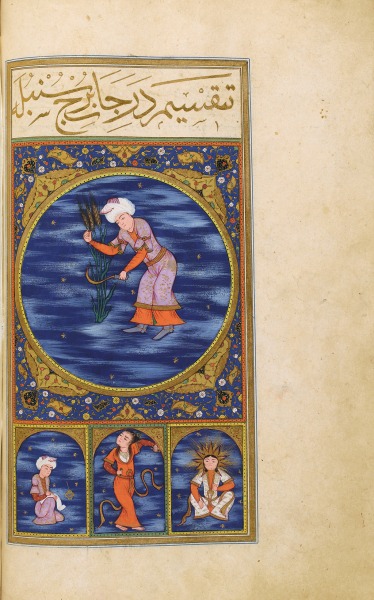 تقسيم درجات برج سنبله